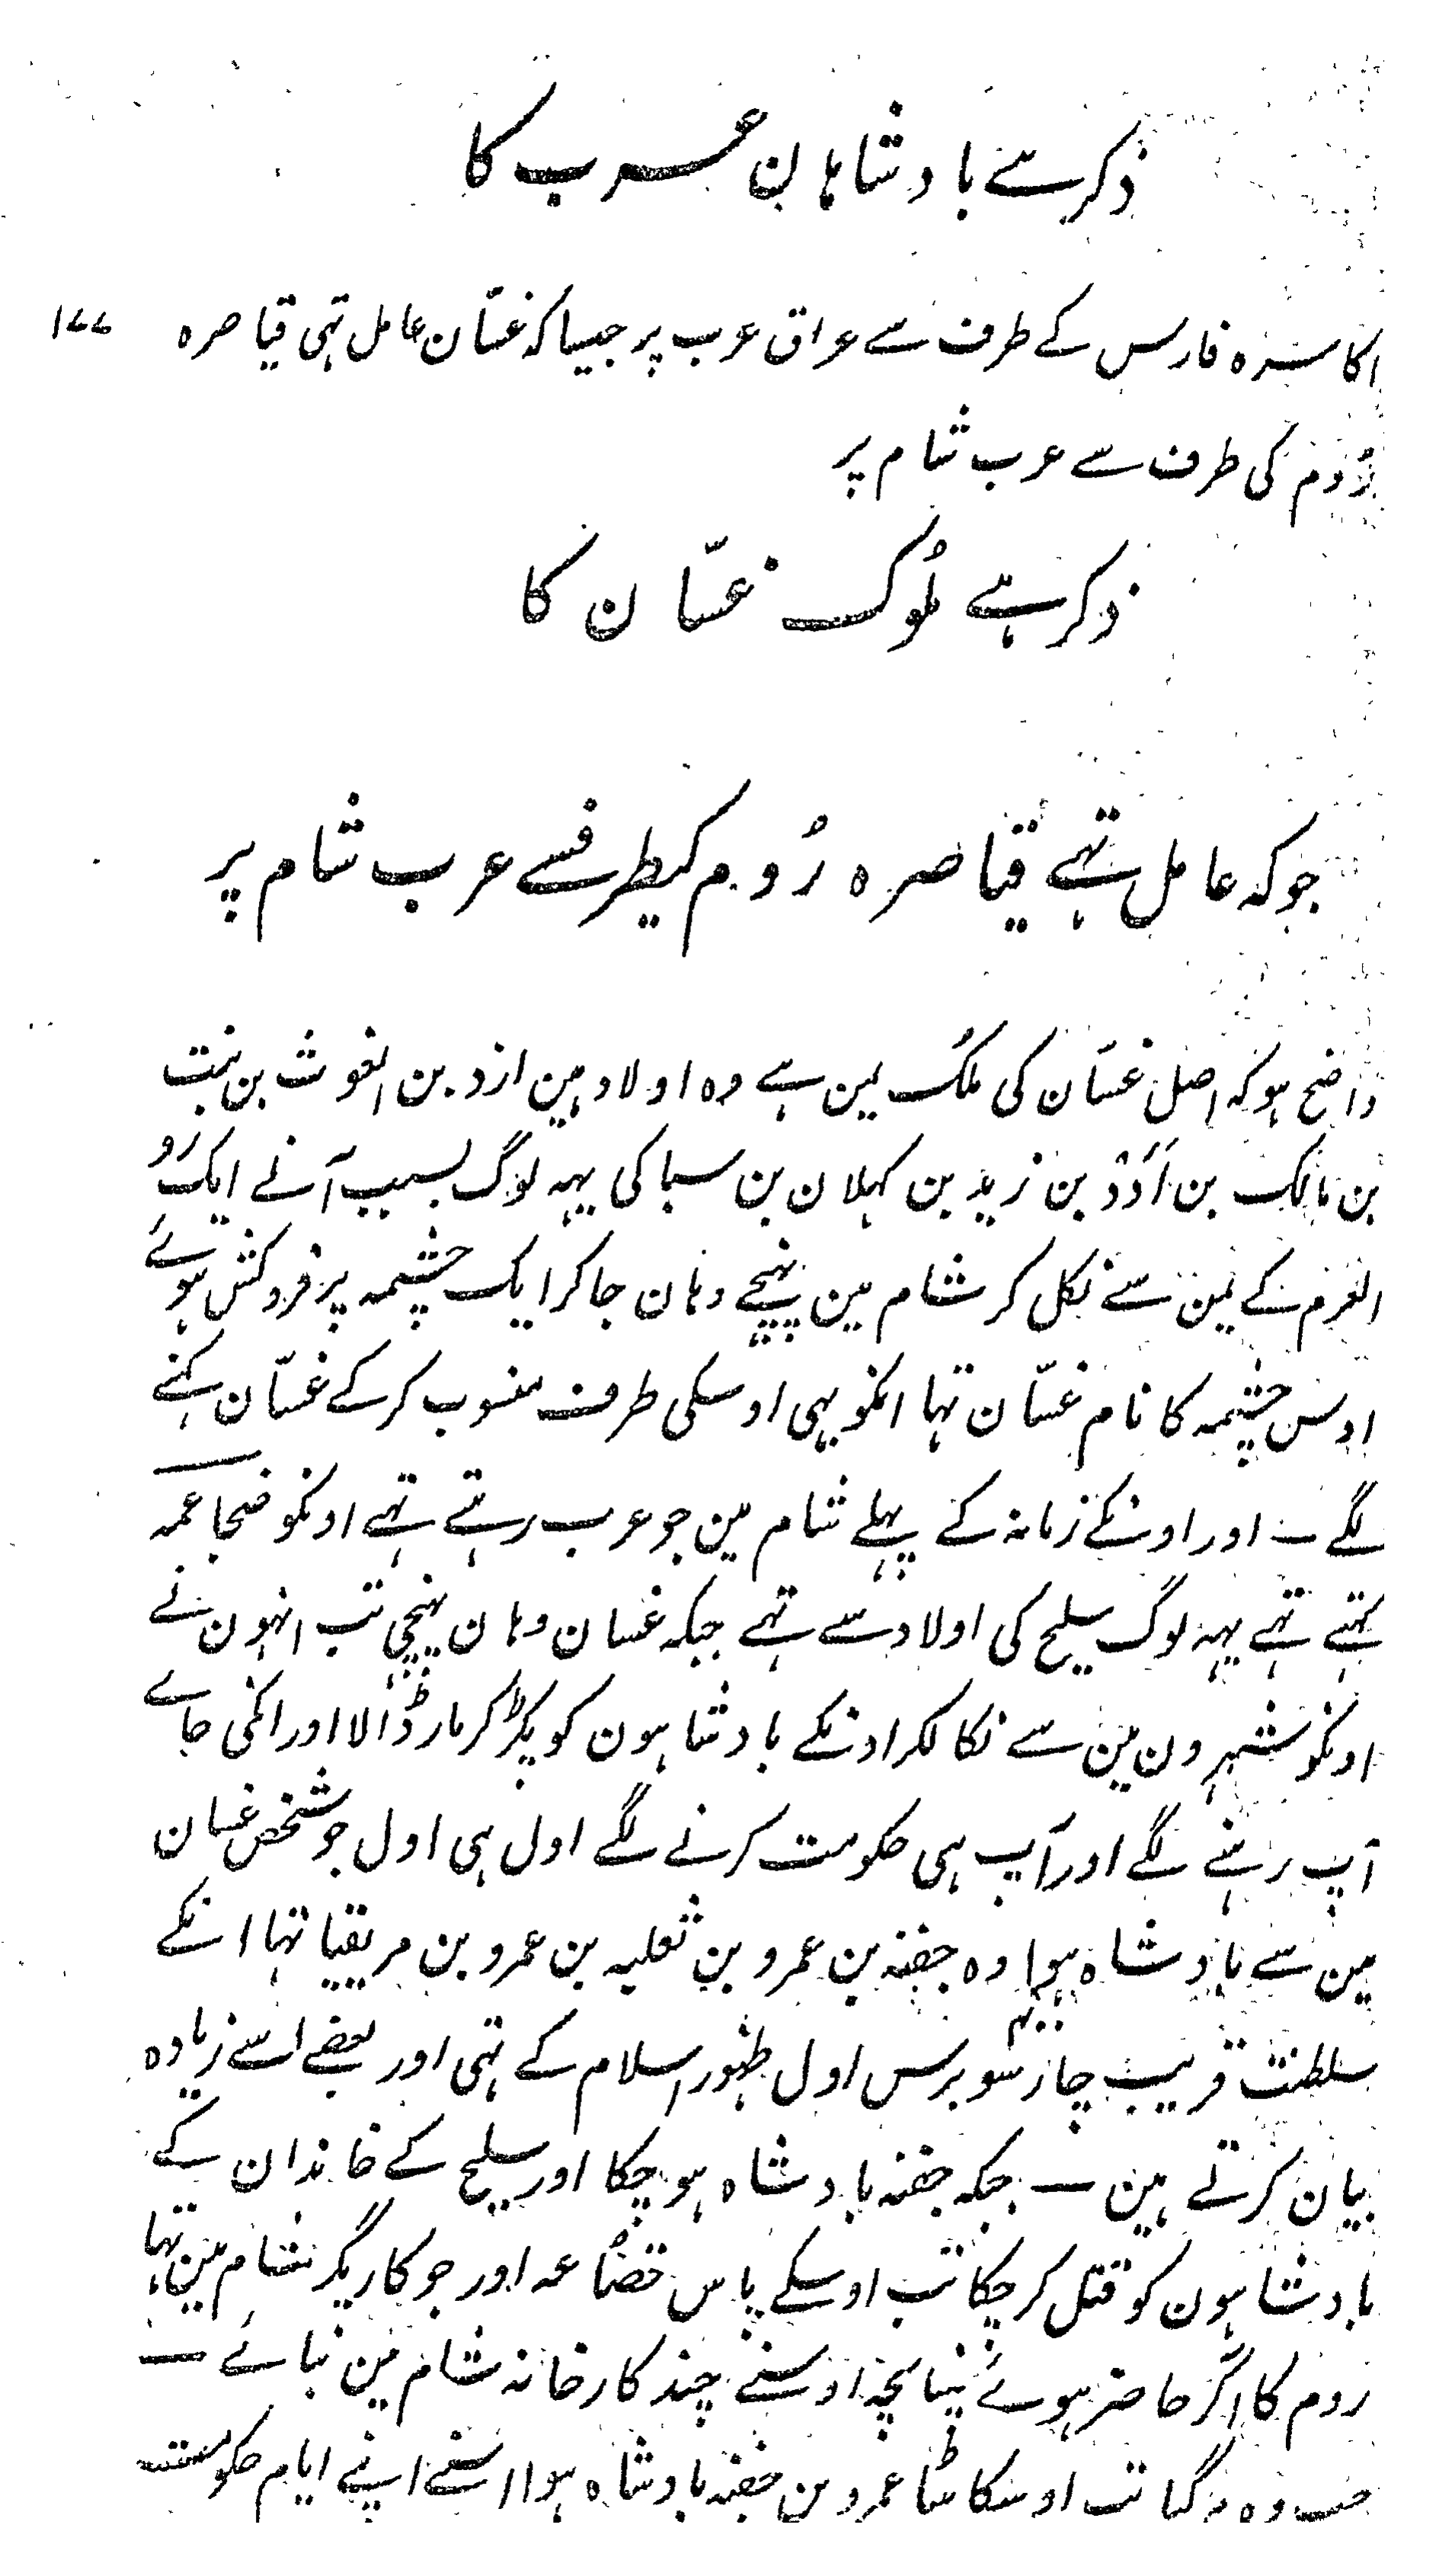 ذکر ہے بادشاہان عرب کا
اکاسرہ فارس کے طرف سے عراق عرب پر جیسا کہ غسّان عامل تہی قیاصرہ ۱۷۷
رُوم کی طرف سے عرب شام پر
ذکر ہے مُلوک غسّان کا
جوکہ عامل تہے قیاصرہ رُوم کیطرفسے عرب شام پر
واضح ہو کہ اصل غسّان کی ملک یمن ہے وہ اولاد ہین ازد بن الغوث بن نبت
بن مالک بن اُدَدْ بن زید بن کہلان بن سبا کی یہہ لوگ بسبب آنے ایک رو
العرم کے یمن سے نکل کر شام مین پہنچے وہان جاکر ایک چشمہ پر فروکش ہوئے
اوس چشمہ کا نام غسّان تہا انکو بہی اوسکی طرف منسوب کرکے غسّان کہنے
لگے ۔ اور اونکے زمانہ کے پہلے شام مین جو عرب رہتے تہے اونکو ضجاعمہ
کہتے تہے یہہ لوگ سلیح کی اولاد سے تہے جبکہ غسان وہان پہنچی تب انہون نے
اونکو شہرون مین سے نکالکر اونکے بادشاہون کو پکڑ کر مارڈالا اور انکی جاے
آپ رہنے لگے اور آپ ہی حکومت کرنے لگے اول ہی اول جو شخص غسان
مین سے بادشاہ ہوا وہ جفنہ بن عمرو بن ثعلبہ بن عمرو بن مزیقیا تہا انکے
سلطنت قریب چار سو برس اول ظہور اسلام کے تہی اور بعضے اسے زیادہ
بیان کرتے ہین ۔ جبکہ جفنہ بادشاہ ہوچکا اور سلیح کے خاندان کے
بادشاہون کو قتل کرچکا تب اوسکے پاس قضاعہ اور جو کاریگر شام مین تہا
روم کا آکر حاضر ہوئے چنانچہ اوسنے چند کارخانہ شام مین بنائے ۔
جب وہ مرگیا تب اوسکا بیٹا عمرو بن جفنہ بادشاہ ہوا اسنے اپنے ایام حکومت